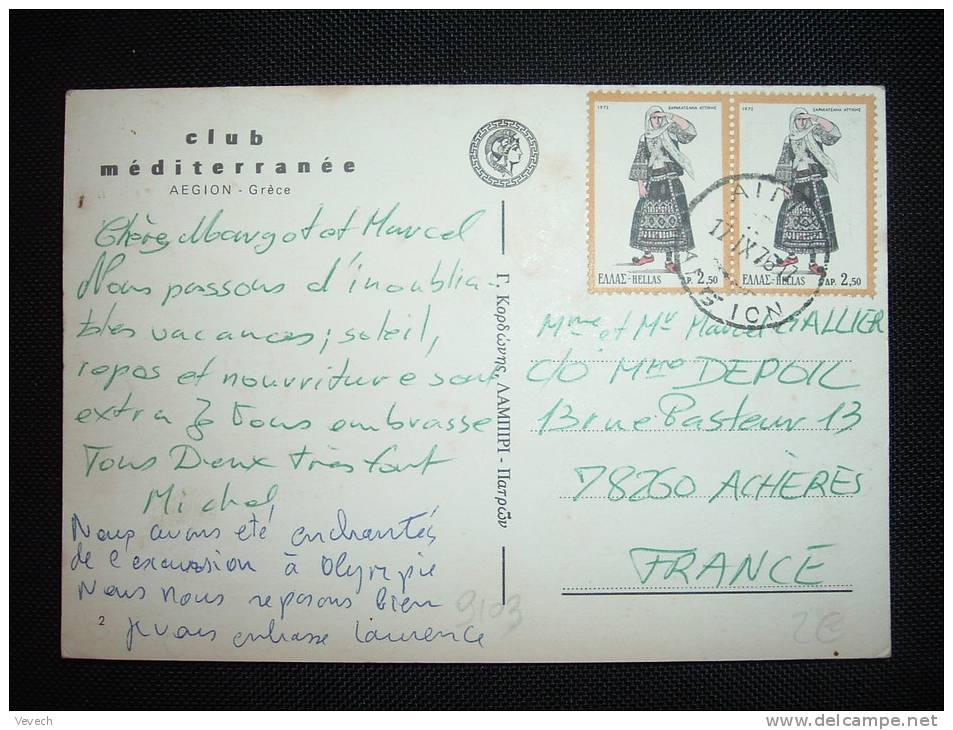 club
méditerranée
AEGION - Grèce
Chers Margot et Marcel
Nous passons d'inoublia-
bles vacances; soleil,
repos et nourriture sont
extra Je vous embrasse
Tous Deux très fort
Michel
Nous avons été enchantés
de l'excursion à Olympie
Nous nous reposons bien
Je vous embrasse Laurence
2
9103
Γ. Κορδώνης, ΛΑΜΠΡΙ - Πατρῶν
1972 ΣΑΡΑΚΑΤΣΑΝΑ ΑΤΤΙΚΗΣ
ΕΛΛΑΣ-HELLAS ΔΡ. 2,50
1972 ΣΑΡΑΚΑΤΣΑΝΑ ΑΤΤΙΚΗΣ
ΕΛΛΑΣ-HELLAS ΔΡ. 2,50
17 IX 73
Mme et Mr Marcel GALLIER
c/o Mme DEPOIL
13 rue Pasteur 13
78260 ACHÈRES
FRANCE
2€
Vevech
www.delcampe.net